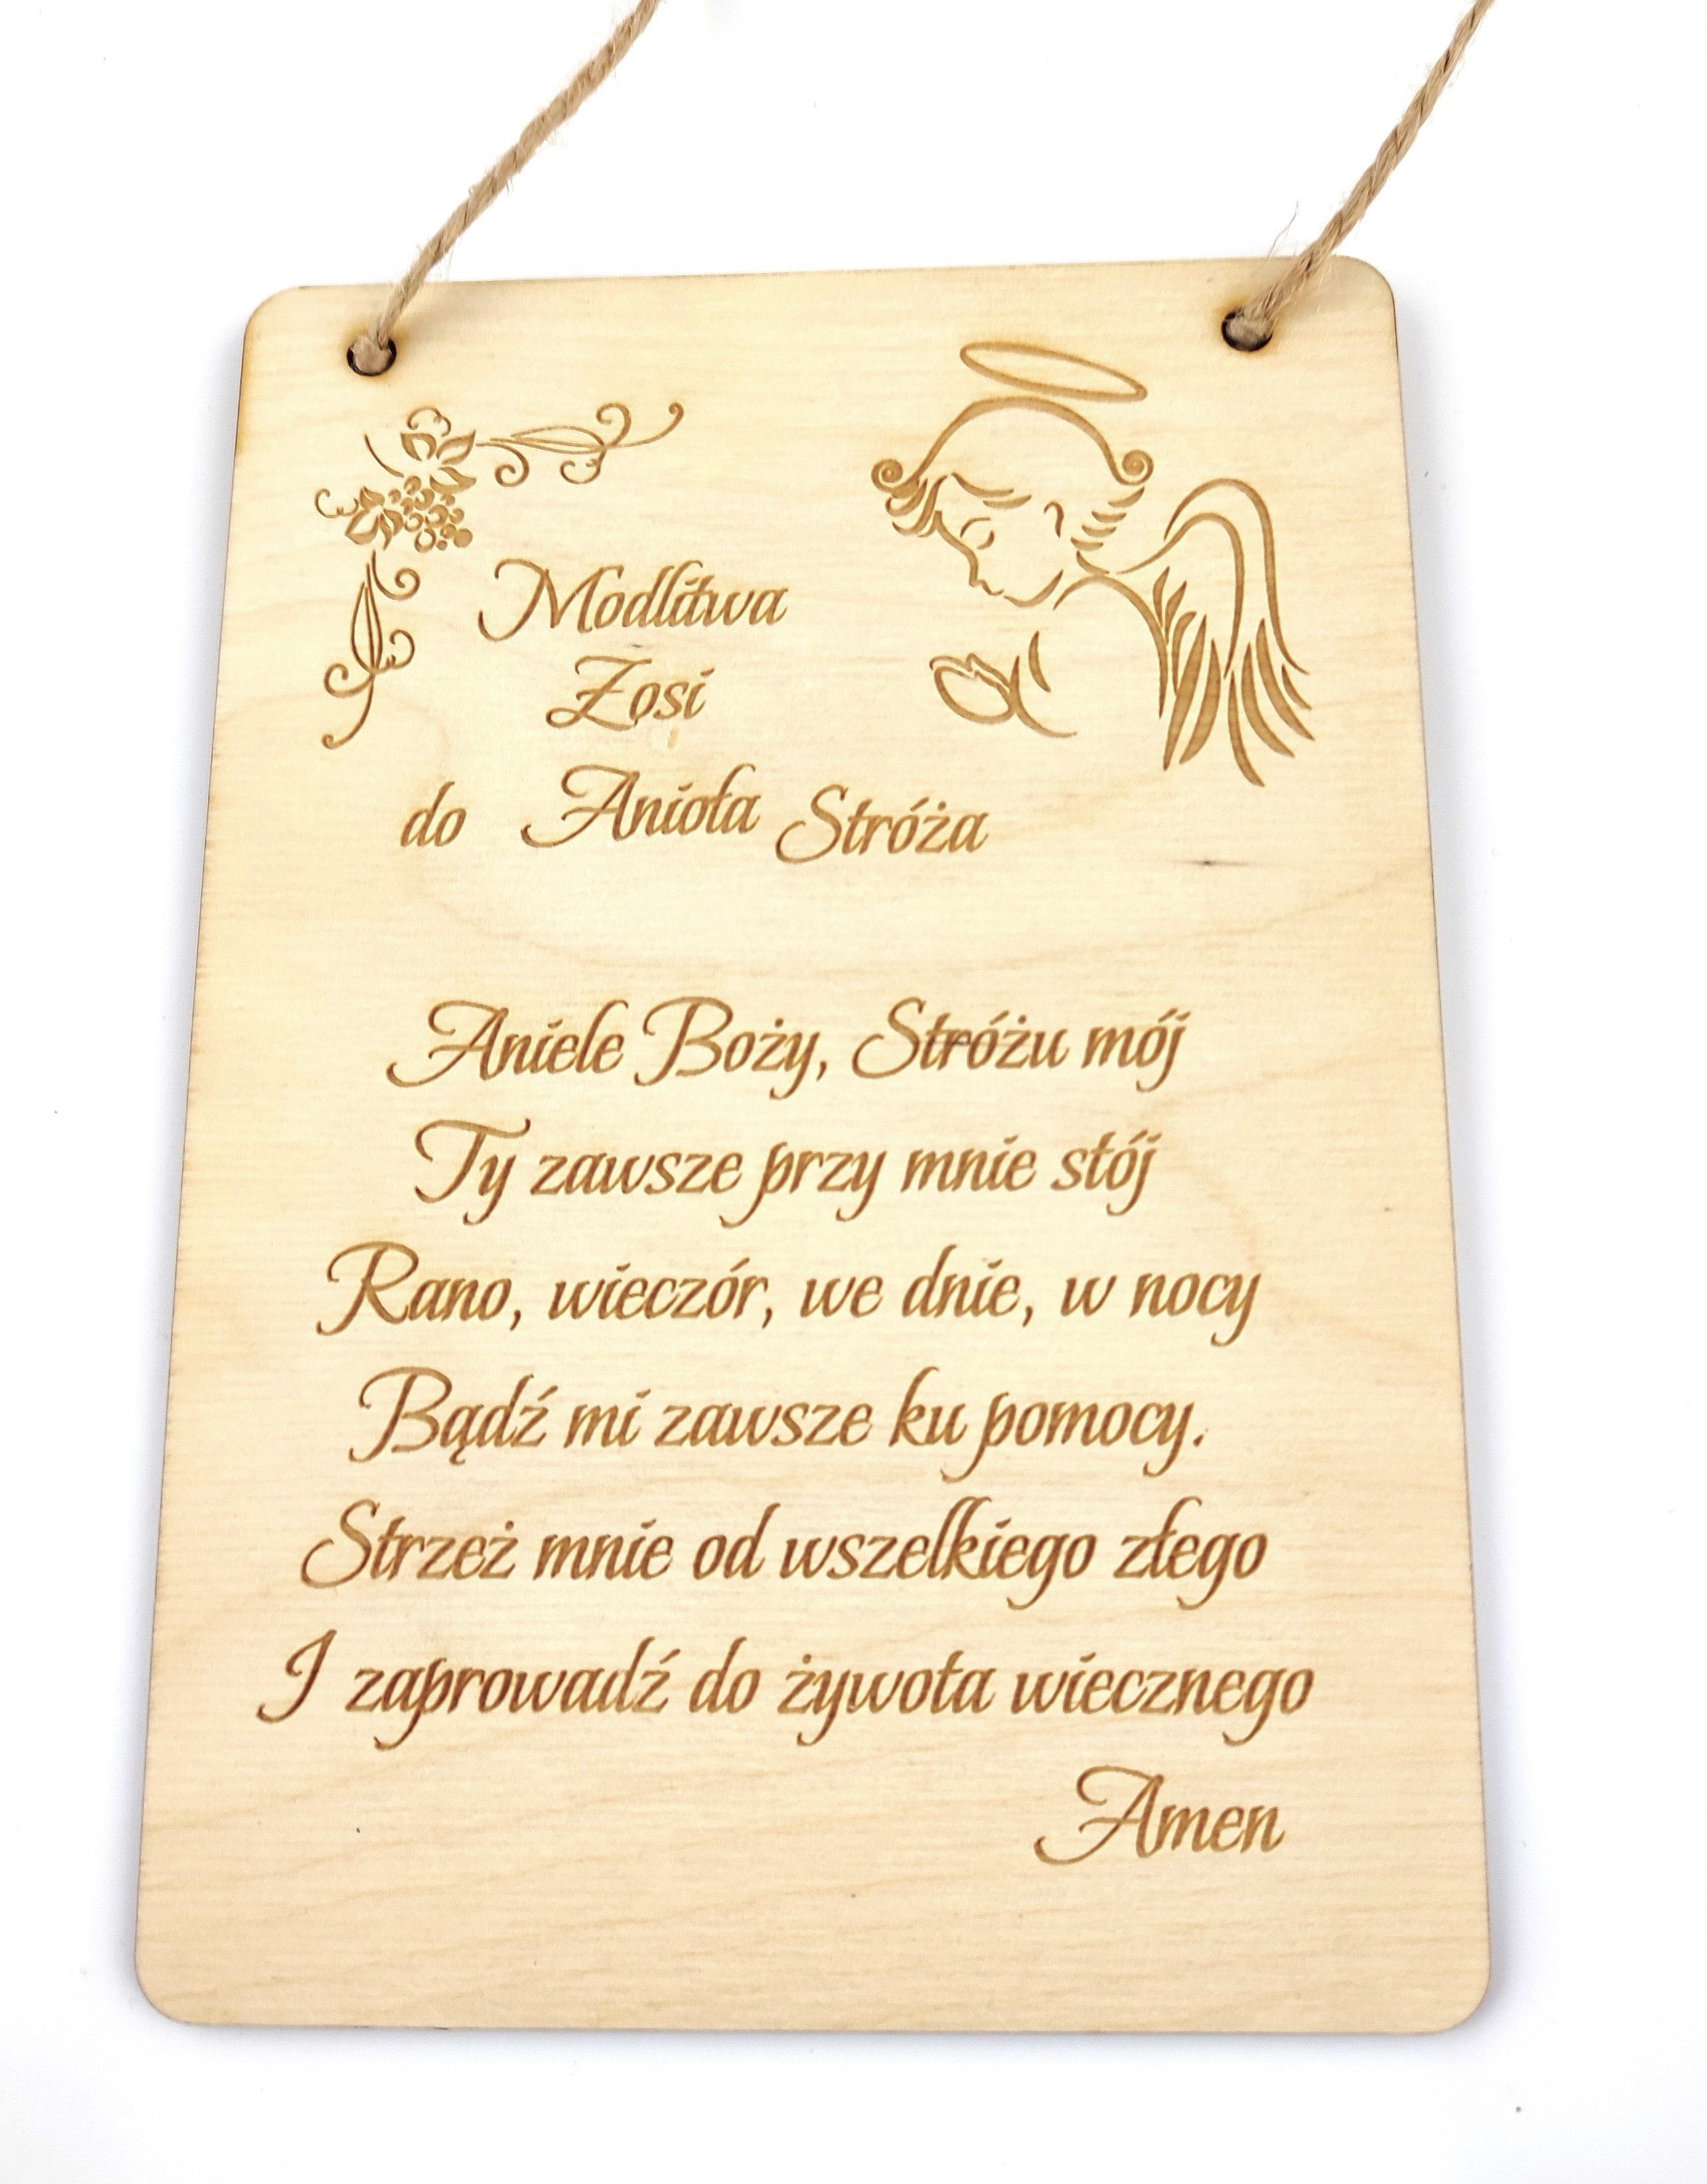 Modlitwa
Zosi
do Anioła Stróża
Aniele Boży, Stróżu mój
Ty zawsze przy mnie stój
Rano, wieczór, we dnie, w nocy
Bądź mi zawsze ku pomocy.
Strzeż mnie od wszelkiego złego
I zaprowadź do żywota wiecznego
Amen